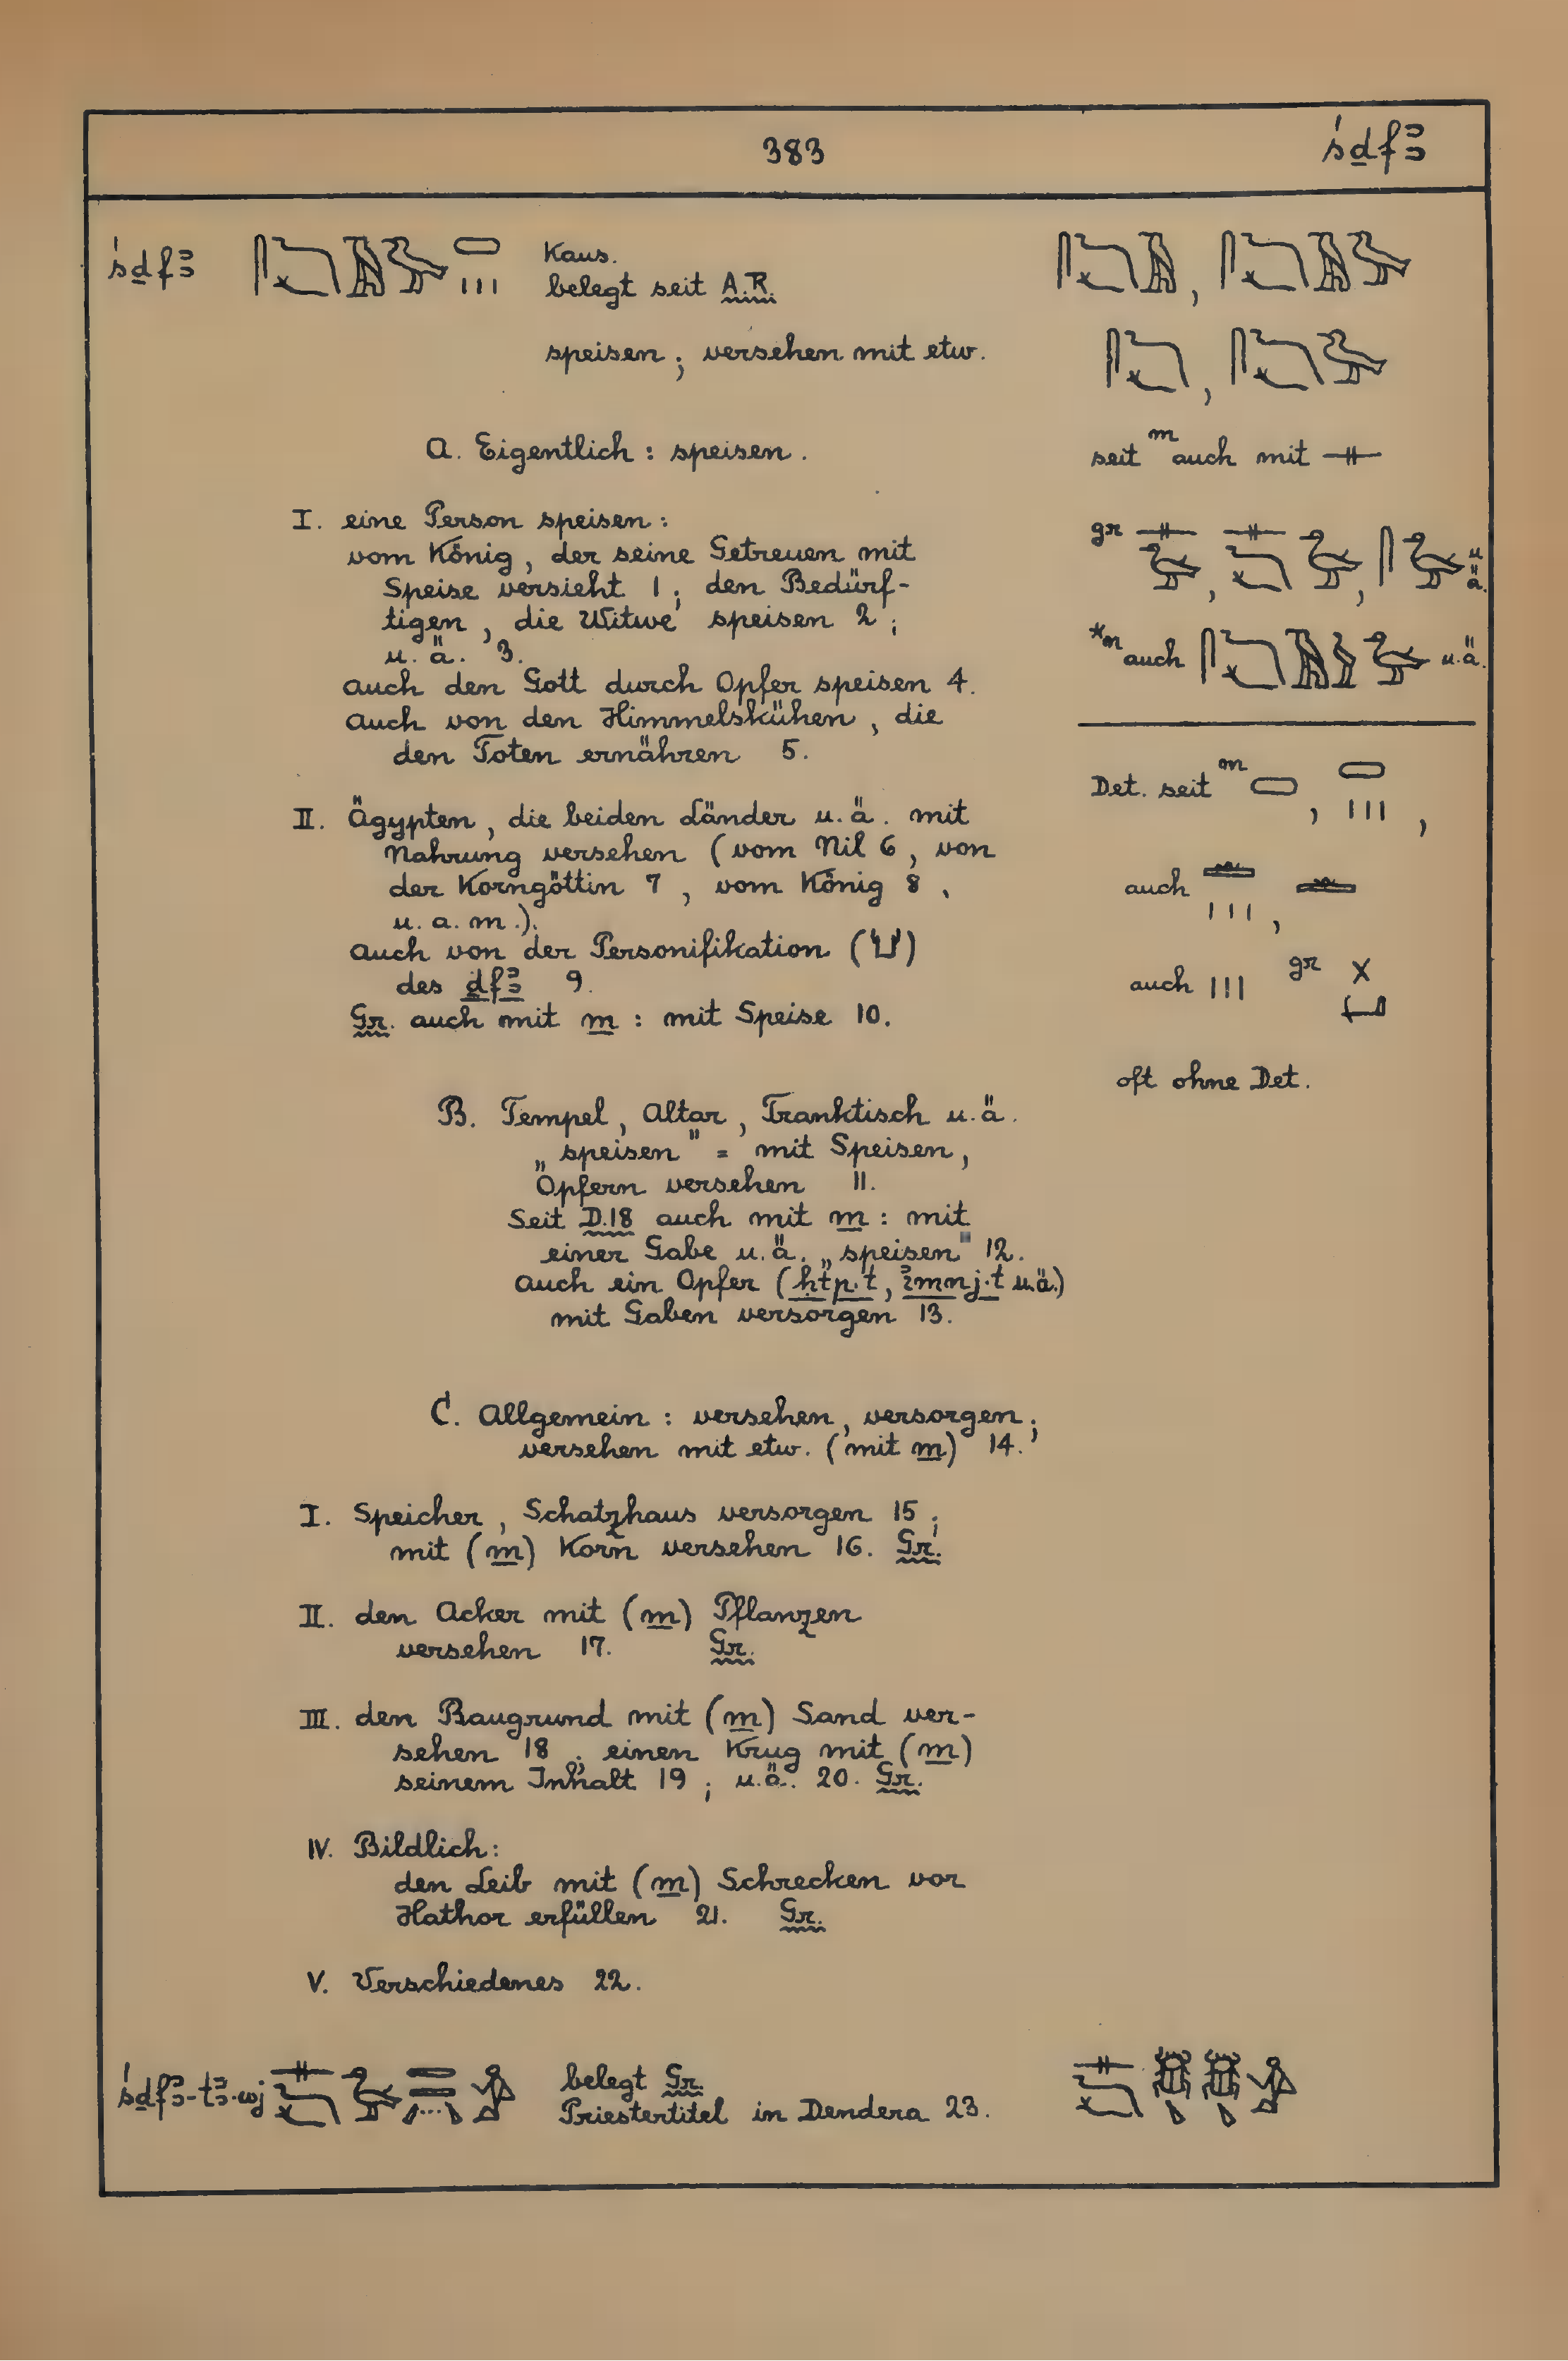 383
śḏfꜣ
śḏfꜣ
Kaus.
belegt seit A.R.
speisen; versehen mit etw.
A. Eigentlich: speisen.
I. eine Person speisen:
vom König, der seine Getreuen mit
Speise versieht 1; den Bedürf-
tigen, die Witwe speisen 2;
u.ä. 3.
auch den Gott durch Opfer speisen 4.
auch von den Himmelskühen, die
den Toten ernähren 5.
II. Ägypten, die beiden Länder u.ä. mit
Nahrung versehen (vom Nil 6, von
der Korngöttin 7, vom König 8,
u.a.m.).
auch von der Personifikation (𓂓)
des ḏfꜣ 9.
Gr. auch mit m: mit Speise 10.
B. Tempel, Altar, Tranktisch u.ä.
„speisen" = mit Speisen,
Opfern versehen 11.
Seit D.18 auch mit m: mit
einer Gabe u.ä. „speisen" 12.
auch ein Opfer (ḥtp.t, ꜣmnj.t u.ä.)
mit Gaben versorgen 13.
C. Allgemein: versehen, versorgen;
versehen mit etw. (mit m) 14.
I. Speicher, Schatzhaus versorgen 15;
mit (m) Korn versehen 16. Gr.
II. den Acker mit (m) Pflanzen
versehen 17. Gr.
III. den Baugrund mit (m) Sand ver-
sehen 18; einen Krug mit (m)
seinem Inhalt 19; u.ä. 20. Gr.
IV. Bildlich:
den Leib mit (m) Schrecken vor
Hathor erfüllen 21. Gr.
V. Verschiedenes 22.
śḏfꜣ-tꜣ.wj
belegt Gr.
Priestertitel in Dendera 23.
seit m auch mit 𓊃
gr
u.ä.
*m auch
u.ä.
Det. seit m
auch
auch ||| gr
oft ohne Det.